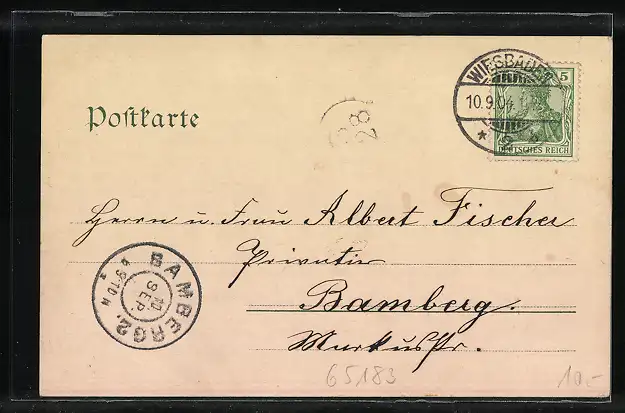 WIESBADEN
10.9.04.
5
DEUTSCHES REICH
Postkarte
28
Herrn u. Frau Albert Fischer
Privatier
Bamberg.
BAMBERG 2.
12
SEP.
Markuspl.
65183
10.-